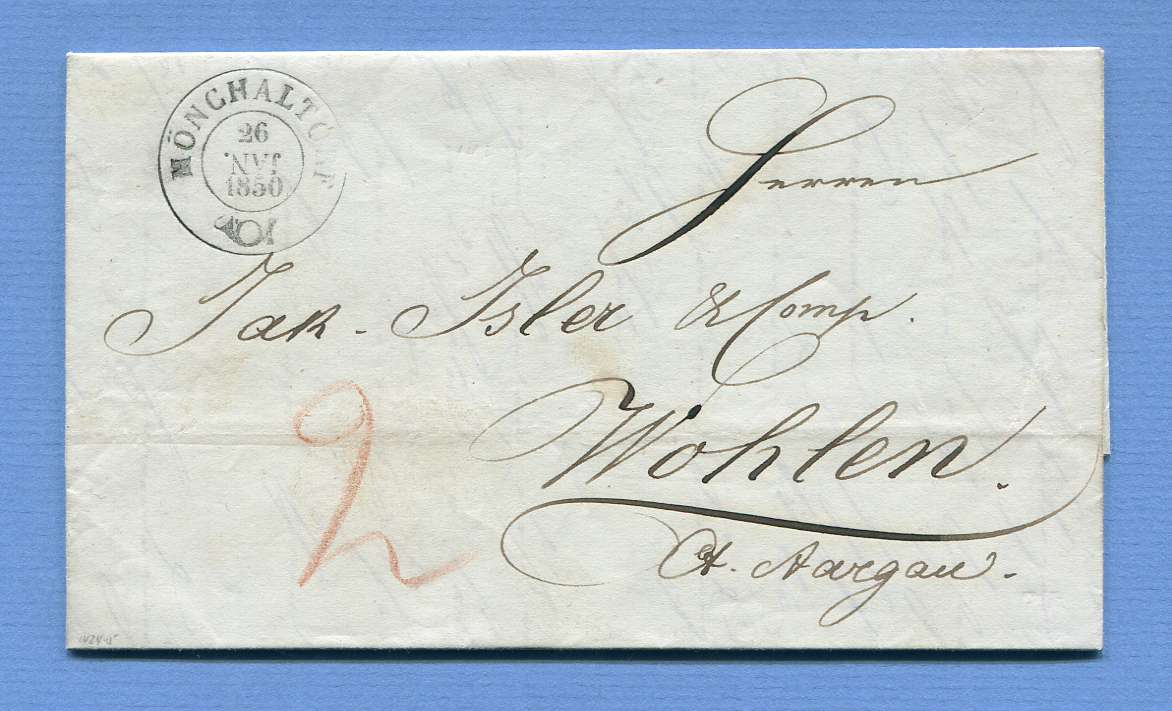 MÖNCHALTORF
26
JAN.
1850
Herren
Jak. Isler & Comp.
2
Wohlen.
Ct. Aargau.